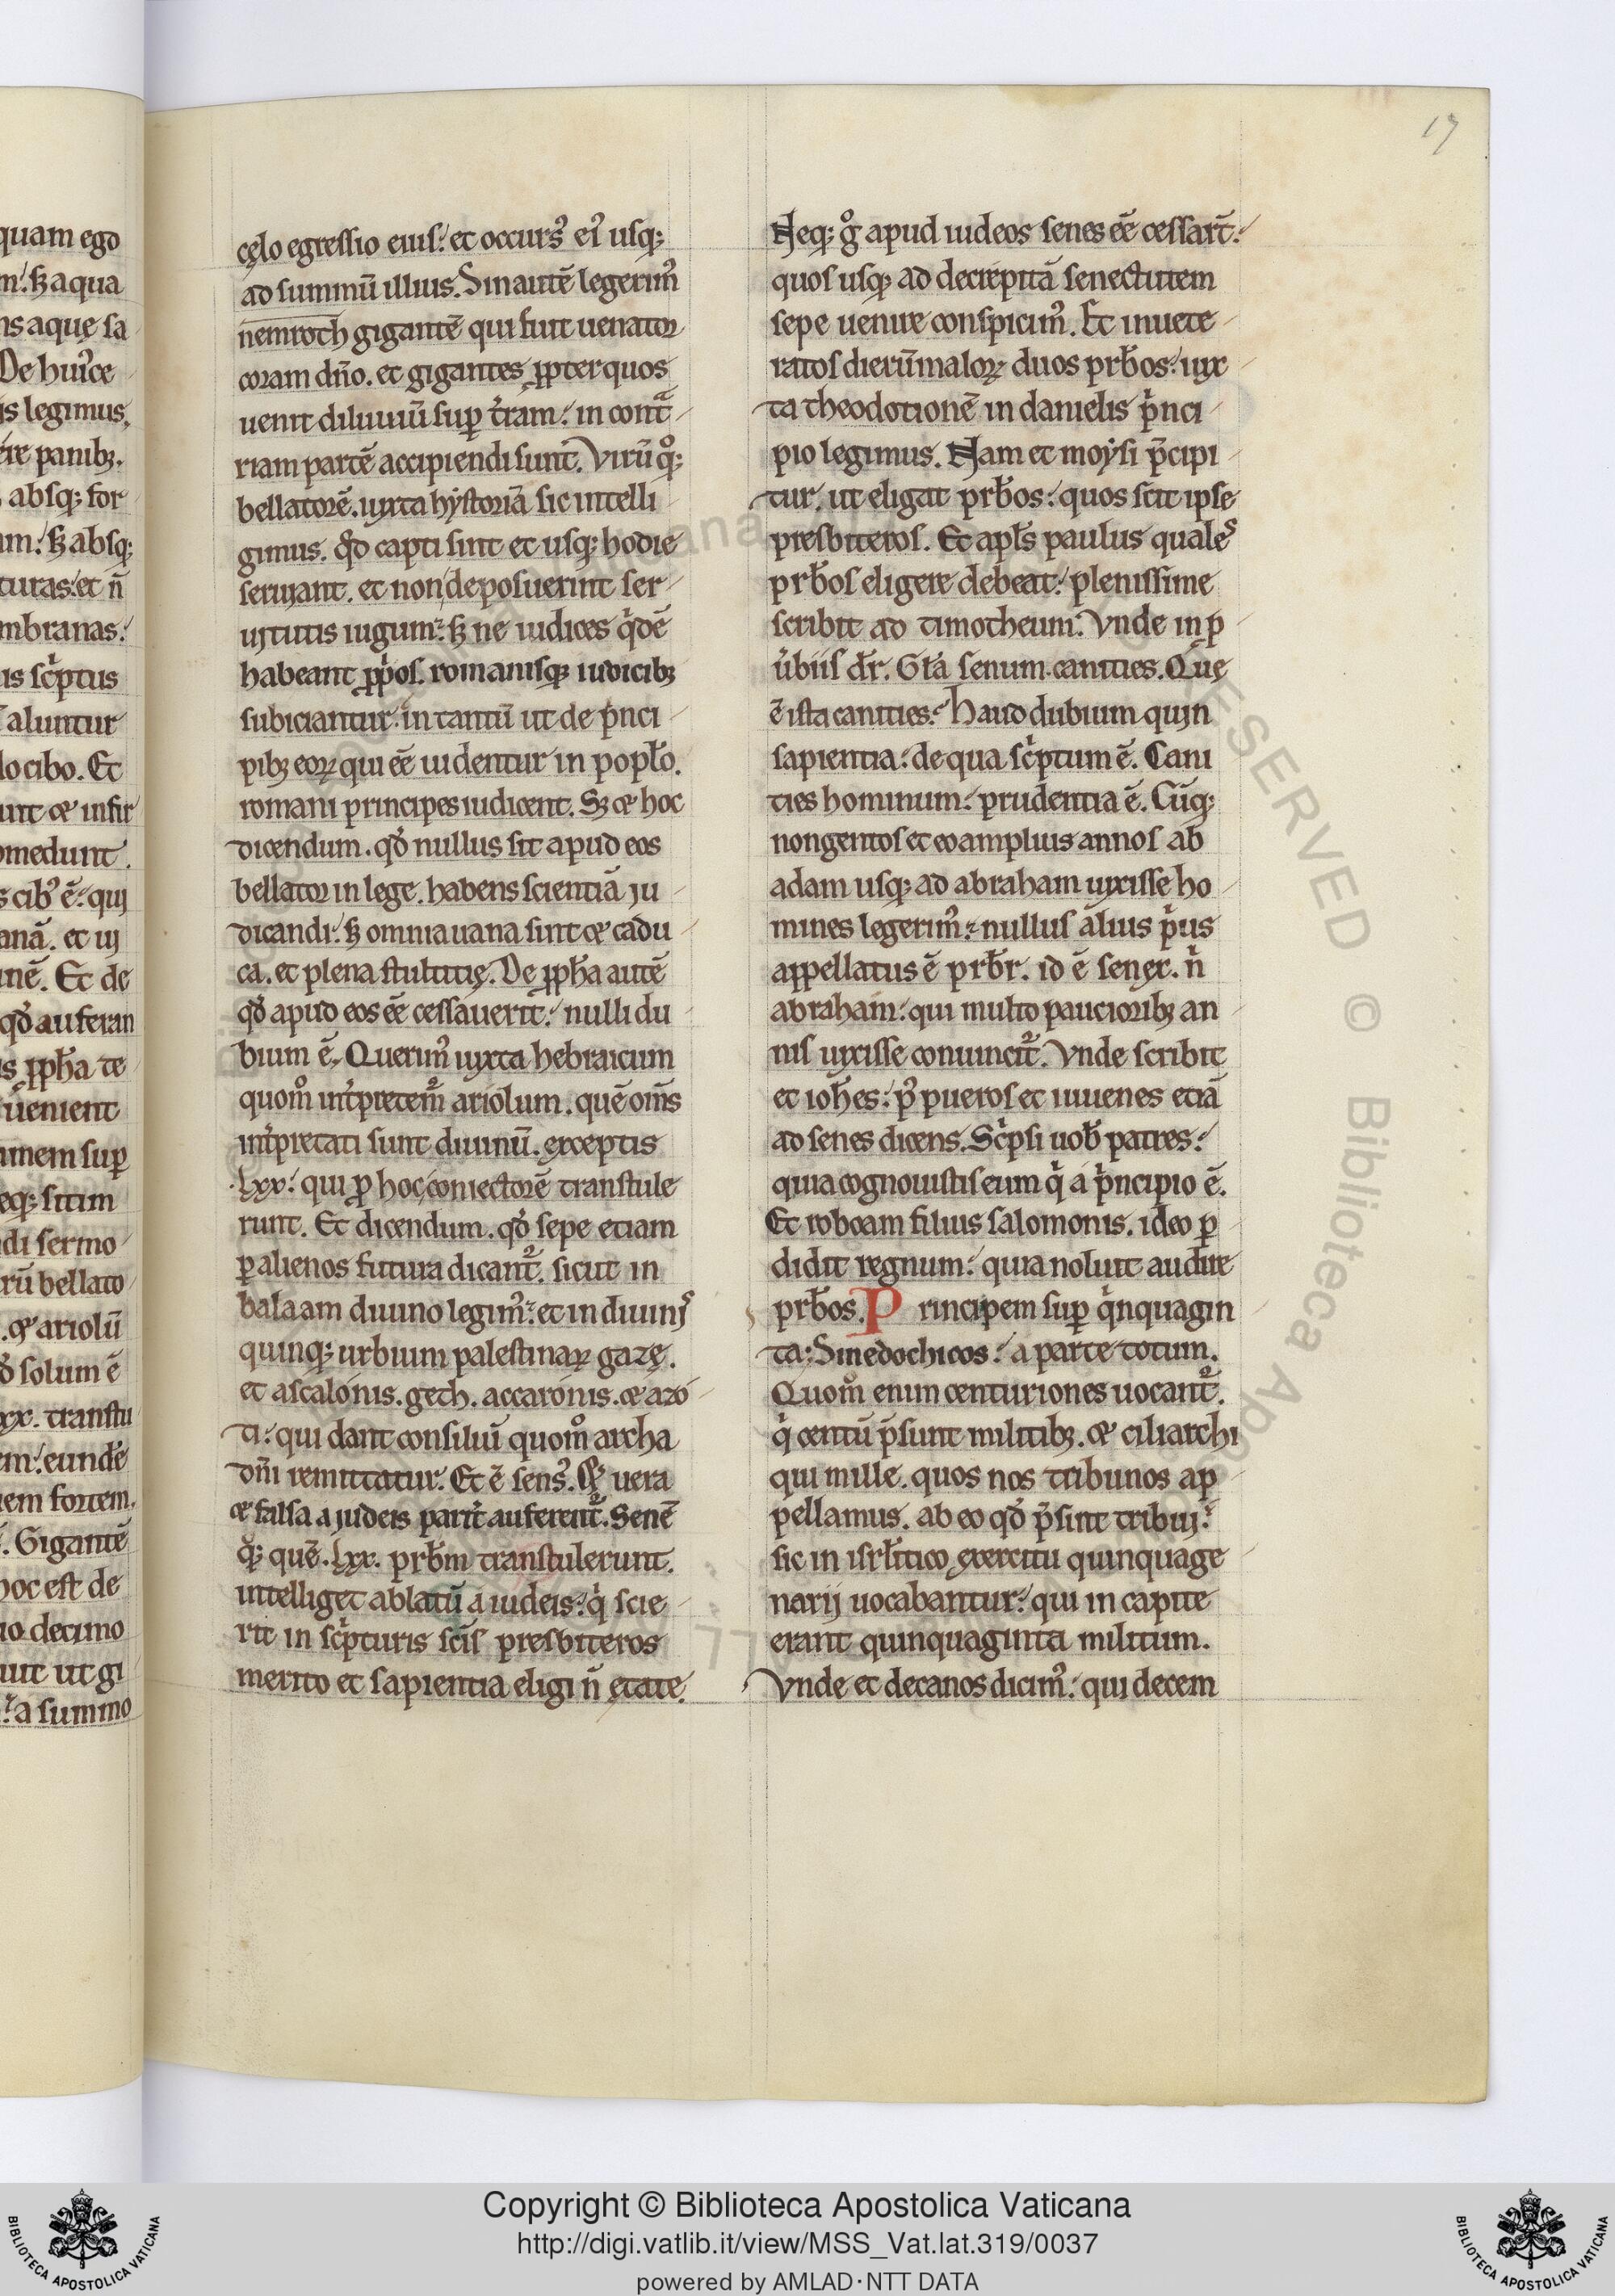 quam ego
m: sꝫ aqua
ns aque sa
De hui'ce
is legimus,
ere panibꝫ.
absqꝫ for
um: sꝫ absqꝫ
turas: et n̄
mbranas:
is sc'ptus
aluntur
lo cibo. Et
unt & infir
omedunt.
s cib' ē: qui
anā. et ui
nē. Et de
qd' auferan
s ꝓph̄a te
uenient
umem suꝑ
eqꝫ sitim
di sermo
rū bellato
. & ariolū
d' solum ē
xx. transtu
em: eundē
em fortem,
. Gigantē
hoc est de
io decimo
uit ut gi
: a summo
17
cęlo egressio eius: et occurs' ei' usqꝫ
ad summū illius. Sin autē legerim'
nemroth gigantē qui fuit uenator
coram dn̄o. et gigantes ꝓpter quos
uenit diluuiū suꝑ t'ram: in cont'
riam partē accipiendi sunt. Virū q°qꝫ
bellatorē. iuxta hystoriā sic intelli
gimus. qd' capti sint et usqꝫ hodie
seruiant. et non deposuerint ser
uitutis iugum: sꝫ ne iudices q'dē
habeant ꝓp'os. romanisqꝫ iudicibꝫ
subiciantur: in tantū ut de p'nci
pibꝫ eoꝝ qui eē uidentur in popl̄o.
romani principes iudicent. Sꝫ & hoc
dicendum. qd' nullus sit apud eos
bellator in lege. habens scientiā iu
dicandi: sꝫ omnia uana sint & cadu
ca. et plena stultitię. De ꝓph̄a autē
qd' apud eos eē cessauerit: nulli du
bium ē. Querim' iuxta hebraicum
quom° int'pretem̄ ariolum. quē om̄s
int'pretati sunt diuinū. exceptis
.lxx: qui ꝓ hoc coniectorē transtule
runt. Et dicendum. qd' sepe etiam
ꝑ alienos futura dicant'. sicut in
balaam diuino legim': et in diuinis
quinqꝫ urbium palestinaꝝ gazę.
et ascalonis. geth. accaronis. & azo
ti: qui dant consiliū quom° archa
dn̄i remittatur. Et ē sens'. qd' uera
& falsa a iudeis parit' auferent'. Senē
q°qꝫ quē .lxx. prb̄m transtulerunt.
intelliget ablatū a iudeis: q' scie
rit in sc'pturis sc̄is presbiteros
merito et sapientia eligi n̄ ętate.
Neqꝫ g° apud iudeos senes eē cessar̄t:
quos usqꝫ ad decrepitā senectutem
sepe uenire conspicim'. Et inuete
ratos dierū maloꝝ duos prb̄os: iux
ta theodotionē in danielis p'nci
pio legimus. Nam et moysi p̄cipi
tur. ut eligat prb̄os: quos scit ipse
presbiteros. Et apl̄s paulus quales
prb̄os eligere debeat: plenissime
scribit ad timotheum. Vnde in ꝓ
u'biis dr̄. Gl̄a senum canities. Quę
ē ista canities: Haud dubium quin
sapientia: de qua sc'ptum ē. Cani
ties hominum: prudentia ē. Cūqꝫ
nongentos et eo amplius annos ab
adam usqꝫ ad abraham uixisse ho
mines legerim': nullus alius p'us
appellatus ē prb̄r. id ē senex. n'
abraham: qui multo paucioribꝫ an
nis uixisse conuincit'. Vnde scribit
et ioh̄es: p' pueros et iuuenes etiā
ad senes dicens. Sc'psi uob̄ patres:
quia cognouistis eum q' a p'ncipio ē.
Et roboam filius salomonis. ideo ꝑ
didit regnum: quia noluit audire
prb̄os. Principem suꝑ q'nquagin
ta: Sinedochicos: a parte totum.
Quom° enim centuriones uocant'.
q' centū p̄sunt militibꝫ. & ciliarchi
qui mille. quos nos tribunos ap
pellamus. ab eo qd' p̄sint tribui:
sic in isrl̄itico exercitu quinquage
narij uocabantur: qui in capite
erant quinquaginta militum.
Vnde et decanos dicim': qui decem
Copyright © Biblioteca Apostolica Vaticana
http://digi.vatlib.it/view/MSS_Vat.lat.319/0037
powered by AMLAD·NTT DATA
BIBLIOTECA APOSTOLICA VATICANA
BIBLIOTECA APOSTOLICA VATICANA